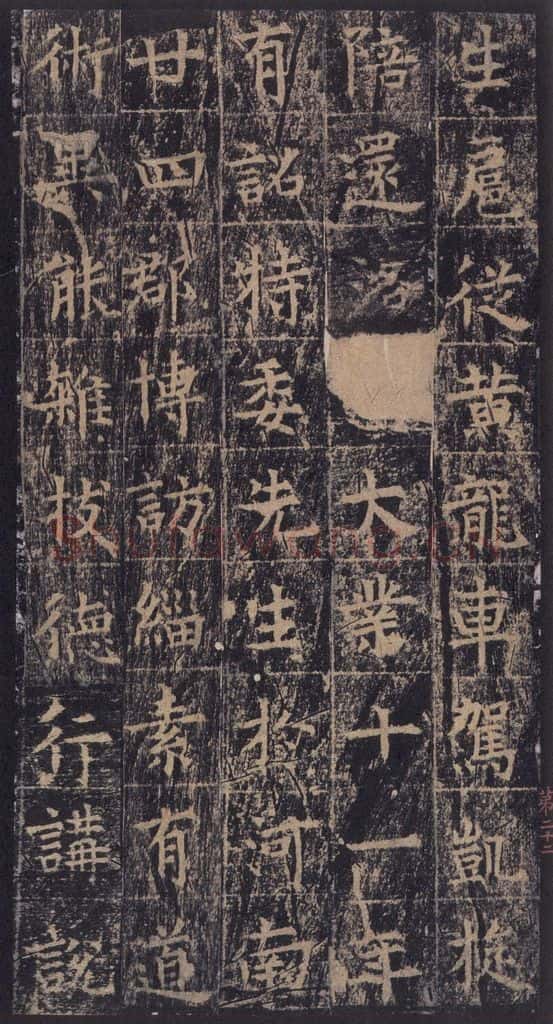 生扈從黄龍車駕凱旋
陪還洛大業十一年
有詔特委先生於河南
廿四郡博訪緇素有道
術異能雜技德行講說
shufawang.cn